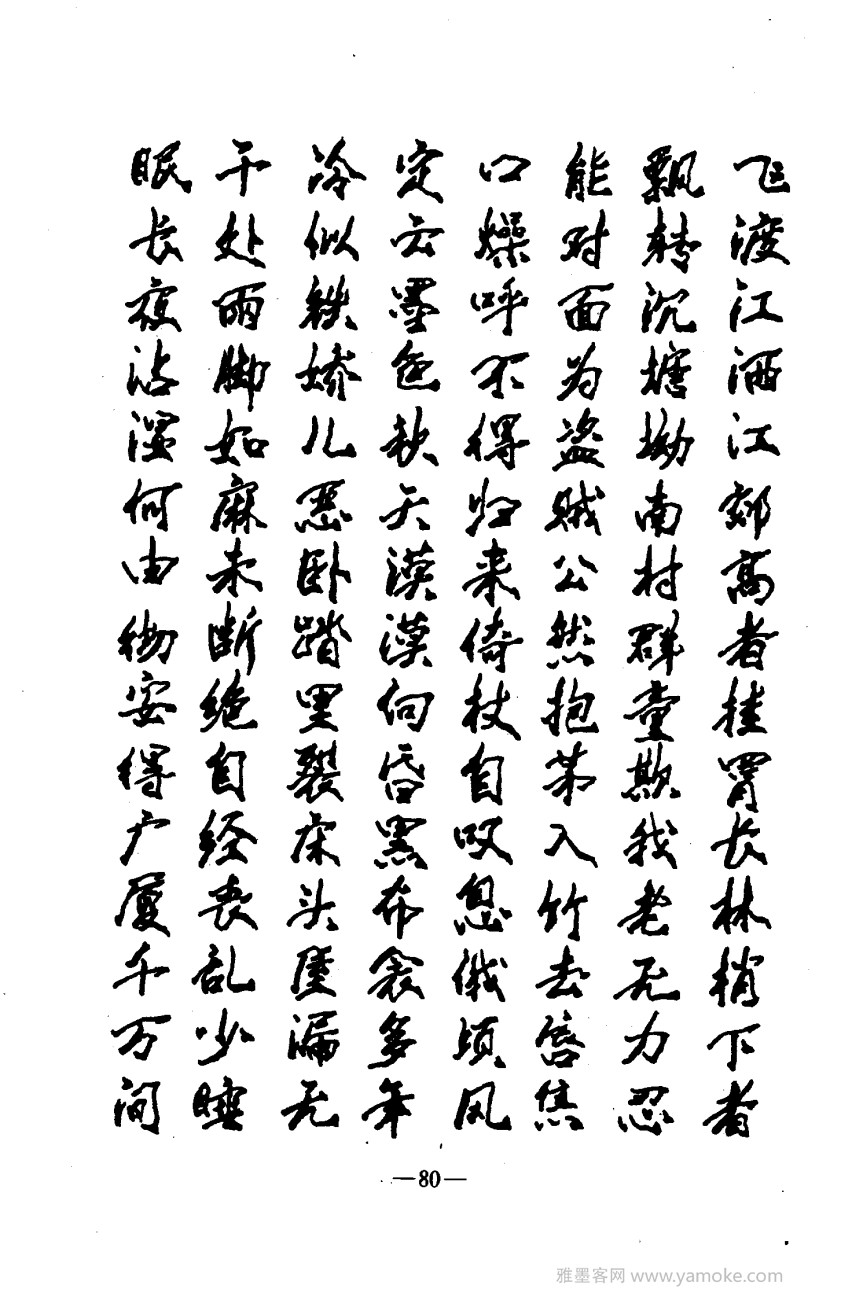 飞渡江洒江郊高者挂罥长林梢下者
飘转沉塘坳南村群童欺我老无力忍
能对面为盗贼公然抱茅入竹去唇焦
口燥呼不得归来倚杖自叹息俄顷风
定云墨色秋天漠漠向昏黑布衾多年
冷似铁娇儿恶卧踏里裂床头屋漏无
干处雨脚如麻未断绝自经丧乱少睡
眠长夜沾湿何由彻安得广厦千万间
—80—
雅墨客网 www.yamoke.com